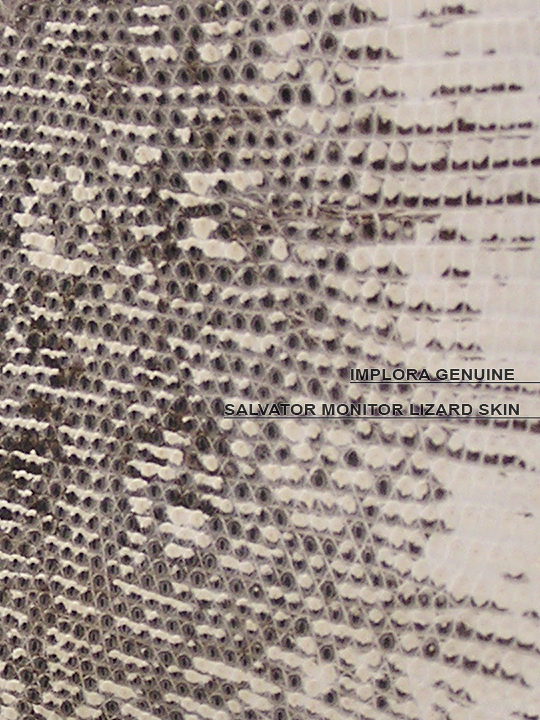 IMPLORA GENUINE
SALVATOR MONITOR LIZARD SKIN